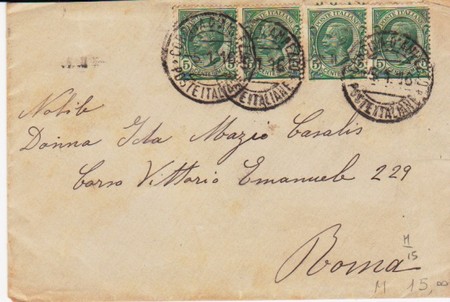 POSTE ITALIANE POSTE ITALIANE POSTE ITALIANE POSTE ITALIANE
5 5 5 5
POSTE ITALIANE
POSTE ITALIANE
POSTE ITALIANE
Nobile
Donna Ida Mazio Casalis
Corso Vittorio Emanuele 229
Roma
M
15
M 15,00